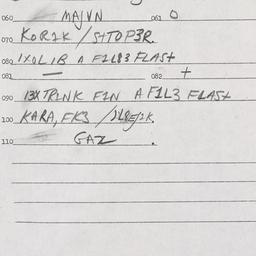 060 MAJVN 061 O
070 KOR1K / STTOP3R
080 1XOL1B A F1L83 FLAST
081 — 082 +
090 13XTR1NK F1N A F1L3 FLAST
100 KARA, FK3
110 GAZ .